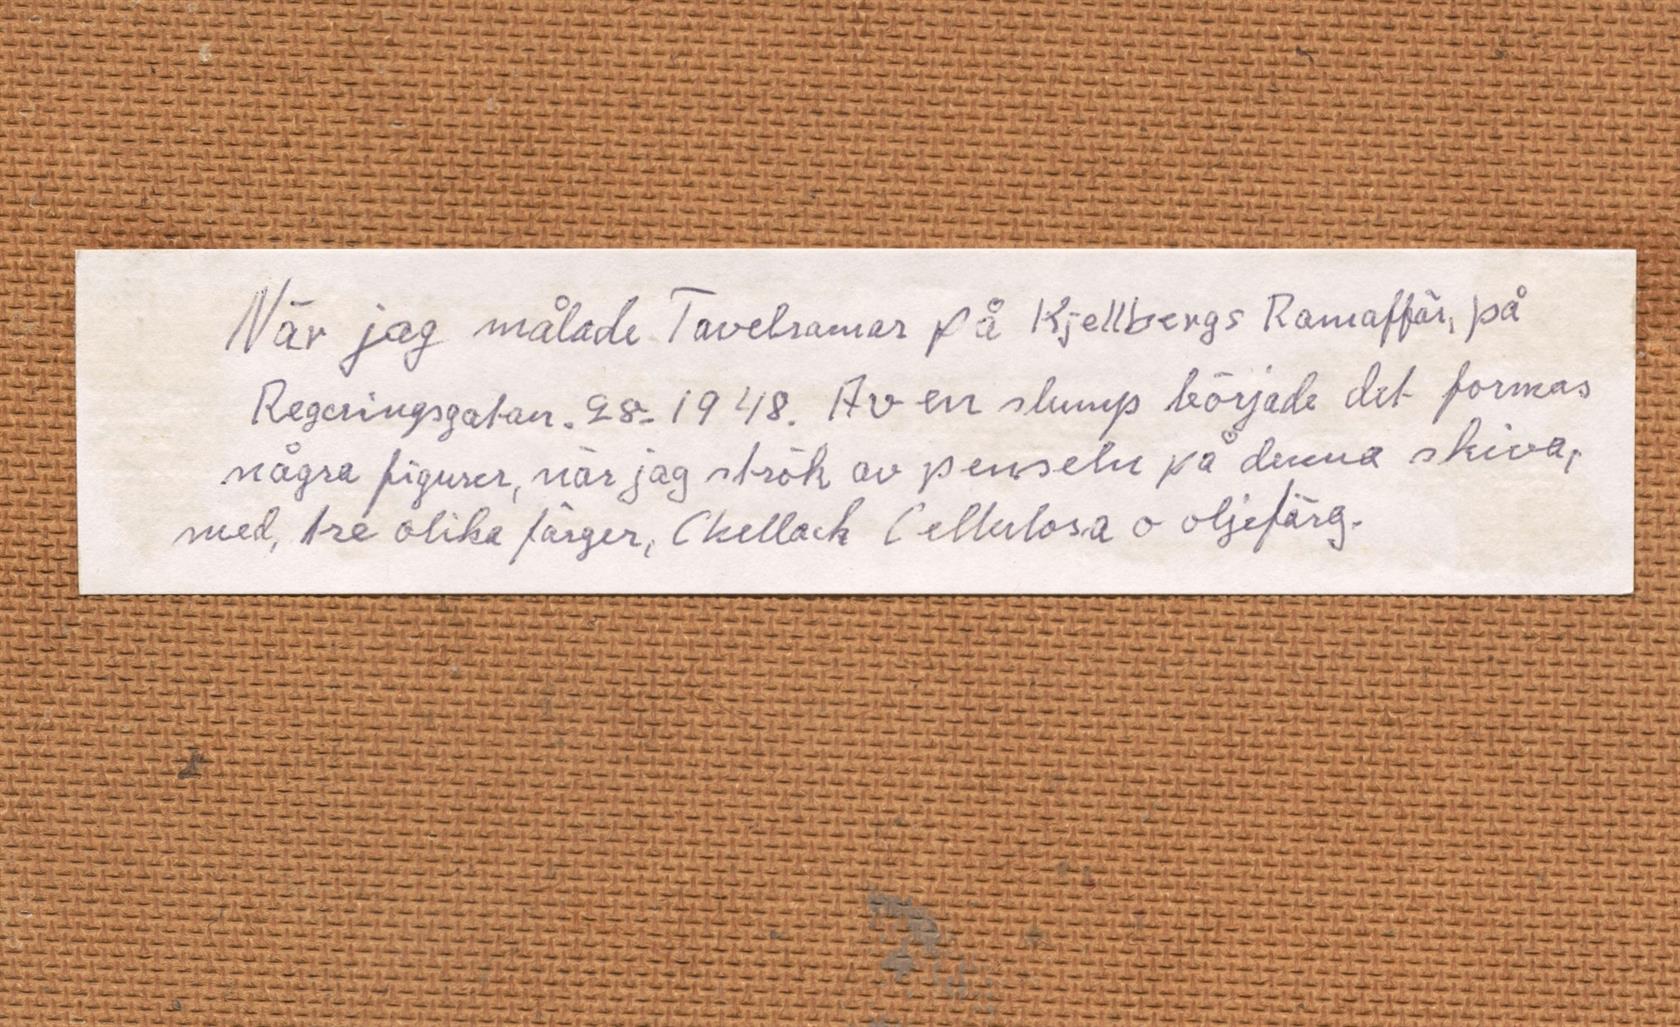 När jag målade Tavelramar på Kjellbergs Ramaffär, på
Regeringsgatan. 28- 1948. Av en slump började det formas
några figurer, när jag strök av penseln på denna skiva,
med, tre olika färger, Ckellack Cellulosa o oljefärg.